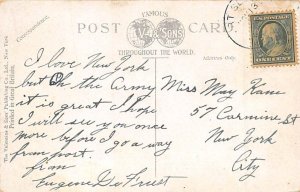 FAMOUS
POST CARD
V&SONS
THROUGHOUT THE WORLD.
Correspondence.
Address Only.
The Valentine & Sons' Publishing Co., Ltd., New York
Printed in Great Britain.
ONE CENT
I love New York
but Oh the Army
it is great I hope
I will see you once
more before I go a way
from
from
Eugene De
Miss May Kane
57 Carmine St
New York
City